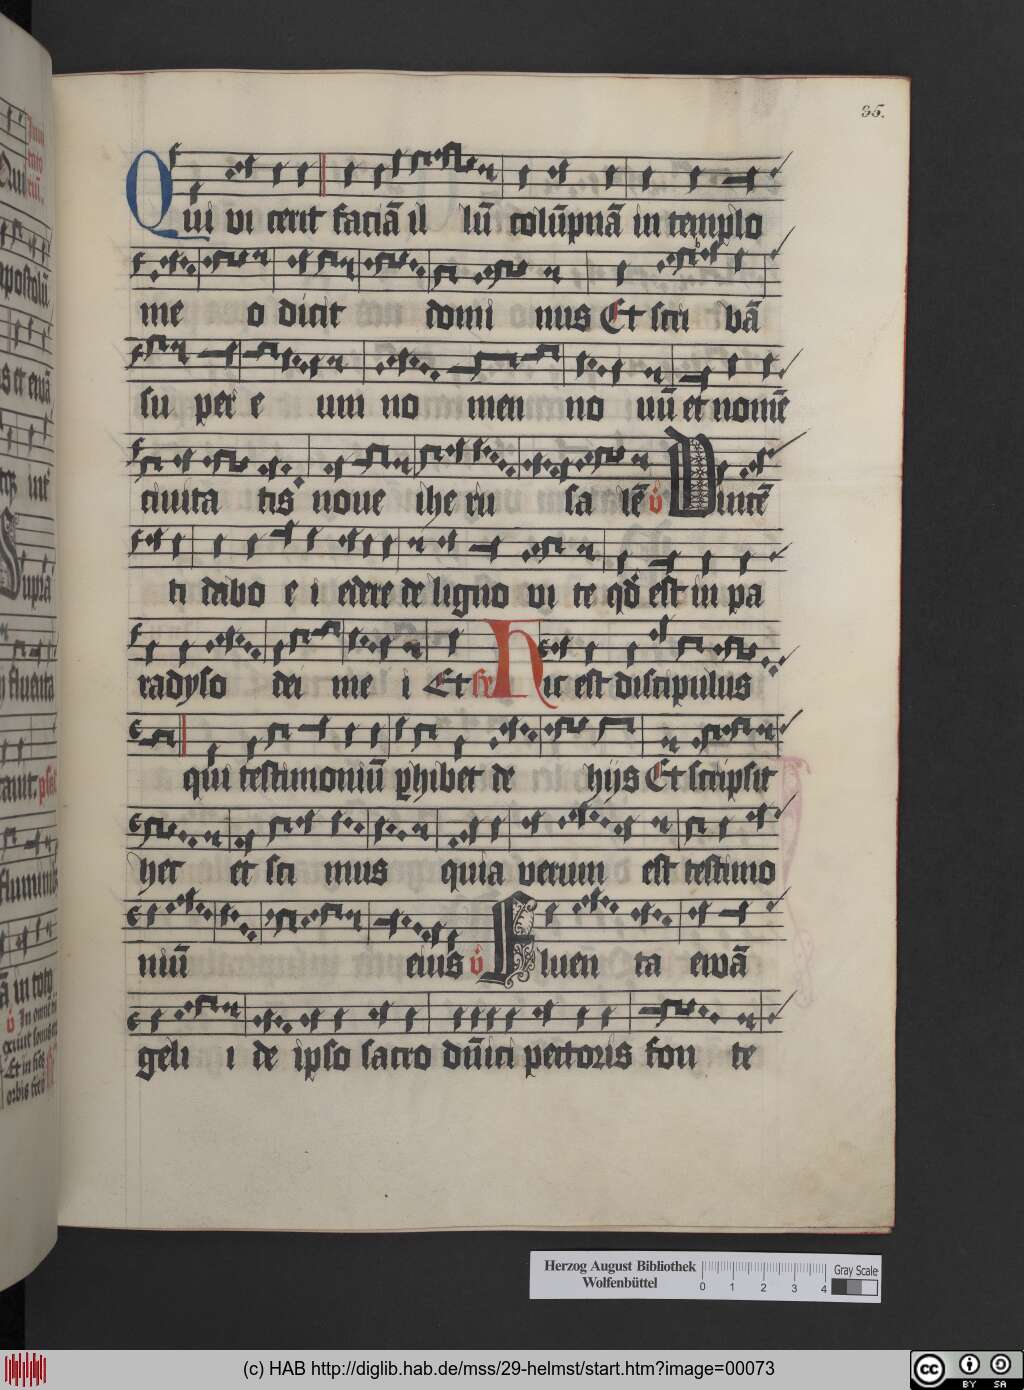 35.
Qui vi cerit faciā il lū colūpnā in templo
me o dicit domi nus Et scri bā
su per e um no men no uū et nomē
civita tis noue ihe ru sa lē v̇ Vincē
ti dabo e i edere de ligno vi te qd̓ est in pa
radyso dei me i Et scr Hic est discipulus
qui testimoniū ꝑhibet de hijs Et scripsit
hec et sci mus quia verum est testimo
niū eius v̇ Fluen ta ewā
geli i de ipso sacro dn̄ici pectoris fon te
Herzog August Bibliothek
Wolfenbüttel
0 1 2 3 4
Gray Scale
(c) HAB http://diglib.hab.de/mss/29-helmst/start.htm?image=00073
cc BY SA